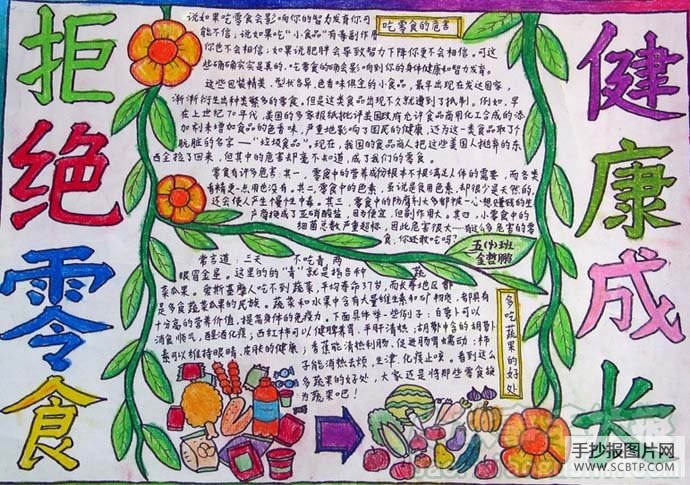 拒绝零食
健康成长
吃零食的危害
说如果吃零食会影响你的智力发育你可
能不信,说如果吃“小食品”有毒副作用
你也不会相信;如果说肥胖会导致智力下降你更不会相信。可这
些确确实实是真的,吃零食的确会影响到你的身体健康和智力发育。
这些包装精美、型状各异、色香味俱全的小食品,最早出现在发达国家,
渐渐衍生出种类繁多的零食。但是这类食品出现不久就遭到了抵制。例如,早
在上世纪70年代,美国的多家报纸批评美国政府允许食品商用化工合成的添
加剂来增加食品的色香味,严重地影响了国民的健康,还为这一类食品取了个
肮脏的名字——“垃圾食品”。现在,我国的食品商人把这些美国人抛弃的东
西全捡了回来,但其中的危害却毫不知道,成了我们的零食。
零食有许多危害:其一,零食中的营养成份根本不能满足人体的需要,而各类
看精走一点用也没有。其二,零食中的色素,虽说是食用色素,却很少是天然的,
这会使人产生慢性中毒。其三,零食中的防腐剂大多都被一心想赚钱的生
产商换成了亚硝酸盐,因为便宜,但副作用大。其四,小零食中的
细菌总数严重超标,因此危害很大——有这么多危害的零
食,你还敢吃吗?
五(1)班
多吃蔬果的好处
常言道:三天 不吃青,两
眼冒金星。这里的的“青”就是指各种 蔬
菜瓜果。爱斯基摩人吃不到蔬菜,平均寿命37岁,而长寿地区都
是多食蔬菜瓜果的民族。蔬菜和水果中含有大量维生素和矿物质,都具有
十分高的营养价值,提高身体的免疫力。下面具体举一些例子:白萝卜可以
消食顺气,醒酒化痰;西红柿可以健脾养胃,平肝清热;胡萝卜含的胡萝卜
素可以维持眼睛、皮肤的健康;香蕉能清热利肠,促进肠胃蠕动;柿
子能清热去烦,生津,化痰止咳。看到这么
多蔬果的好处,大家还是将那些零食换
为蔬果吧!
手抄报图片网
WWW.SCBTP.COM